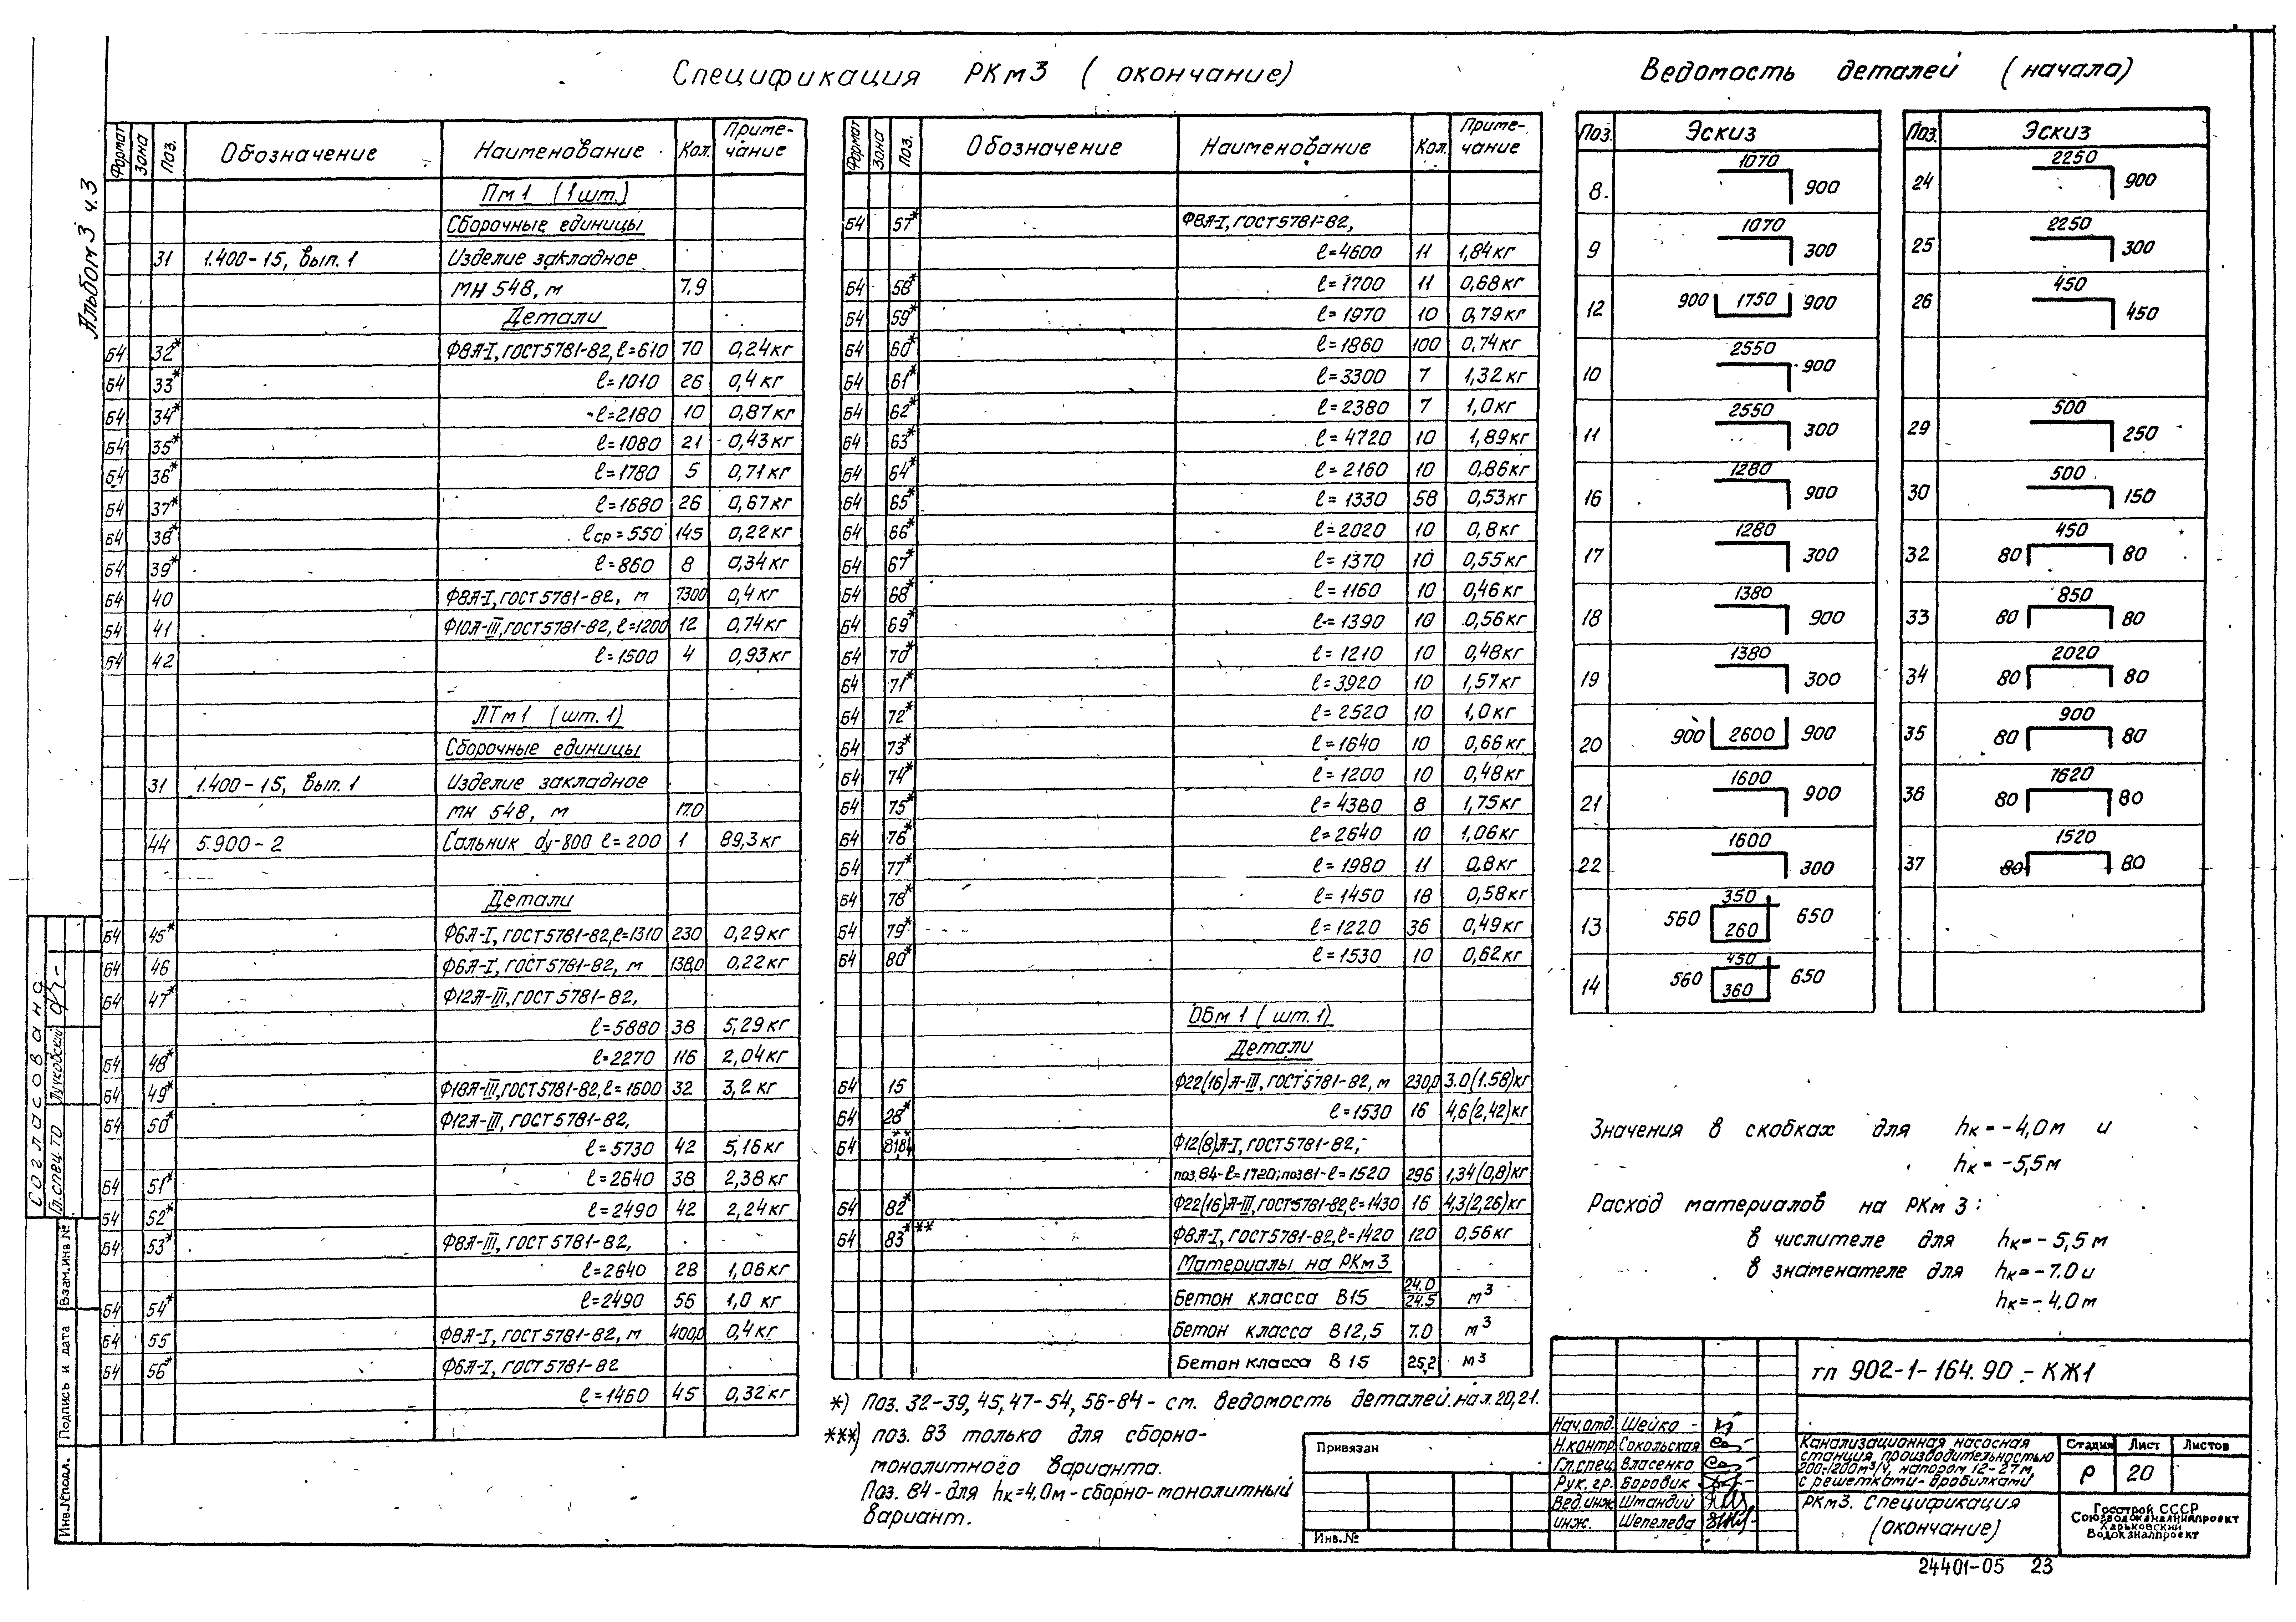 Спецификация РКм3 (окончание)
Ведомость деталей (начало)
Альбом 3 ч.3
Формат Зона Поз. Обозначение Наименование Кол. Примечание
Пм1 (1шт.)
Сборочные единицы
31 1.400-15, вып.1 Изделие закладное
МН 548, м 7.9
Детали
Б4 32* Ф8А-I, ГОСТ 5781-82, ℓ=610 70 0,24кг
Б4 33* ℓ=1010 26 0,4кг
Б4 34* ℓ=2180 10 0,87кг
Б4 35* ℓ=1080 21 0,43кг
Б4 36* ℓ=1780 5 0,71кг
Б4 37* ℓ=1680 26 0,67кг
Б4 38* ℓср=550 145 0,22кг
Б4 39* ℓ=860 8 0,34кг
Б4 40 Ф8А-I, ГОСТ 5781-82, м 730,0 0,4кг
Б4 41 Ф10А-III, ГОСТ 5781-82, ℓ=1200 12 0,74кг
Б4 42 ℓ=1500 4 0,93кг
ЛТм1 (шт.1)
Сборочные единицы
31 1.400-15, вып.1 Изделие закладное
МН 548, м 17.0
44 5.900-2 Сальник dу-800 ℓ=200 1 89,3кг
Детали
Б4 45* Ф6А-I, ГОСТ 5781-82, ℓ=1310 230 0,29кг
Б4 46 Ф6А-I, ГОСТ 5781-82, м 138,0 0,22кг
Б4 47* Ф12А-III, ГОСТ 5781-82,
ℓ=5880 38 5,29кг
Б4 48* ℓ=2270 116 2,04кг
Б4 49* Ф18А-III, ГОСТ 5781-82, ℓ=1600 32 3,2кг
Б4 50* Ф12А-III, ГОСТ 5781-82,
ℓ=5730 42 5,16кг
Б4 51* ℓ=2640 38 2,38кг
Б4 52* ℓ=2490 42 2,24кг
Б4 53* Ф8А-III, ГОСТ 5781-82,
ℓ=2640 28 1,06кг
Б4 54* ℓ=2490 56 1,0кг
Б4 55 Ф8А-I, ГОСТ 5781-82, м 400,0 0,4кг
Б4 56* Ф6А-I, ГОСТ 5781-82
ℓ=1460 45 0,32кг
Формат Зона Поз. Обозначение Наименование Кол. Примечание
Б4 57* Ф8А-I, ГОСТ 5781-82,
ℓ=4600 11 1,84кг
Б4 58* ℓ=1700 11 0,68кг
Б4 59* ℓ=1970 10 0,79кг
Б4 60* ℓ=1860 100 0,74кг
Б4 61* ℓ=3300 7 1,32кг
Б4 62* ℓ=2380 7 1,0кг
Б4 63* ℓ=4720 10 1,89кг
Б4 64* ℓ=2160 10 0,86кг
Б4 65* ℓ=1330 58 0,53кг
Б4 66* ℓ=2020 10 0,8кг
Б4 67* ℓ=1370 10 0,55кг
Б4 68* ℓ=1160 10 0,46кг
Б4 69* ℓ=1390 10 0,56кг
Б4 70* ℓ=1210 10 0,48кг
Б4 71* ℓ=3920 10 1,57кг
Б4 72* ℓ=2520 10 1,0кг
Б4 73* ℓ=1640 10 0,66кг
Б4 74* ℓ=1200 10 0,48кг
Б4 75* ℓ=4380 8 1,75кг
Б4 76* ℓ=2640 10 1,06кг
Б4 77* ℓ=1980 11 0,8кг
Б4 78* ℓ=1450 18 0,58кг
Б4 79* ℓ=1220 36 0,49кг
Б4 80* ℓ=1530 10 0,62кг
ОБм1 (шт.1)
Детали
Б4 15 Ф22(16)А-III, ГОСТ 5781-82, м 230,0 3.0(1.58)кг
Б4 28* ℓ=1530 16 4,6(2,42)кг
Б4 81,84** Ф12(8)А-I, ГОСТ 5781-82,
поз.84-ℓ=1720; поз81-ℓ=1520 296 1,34(0,8)кг
Б4 82* Ф22(16)А-III, ГОСТ 5781-82, ℓ=1430 16 4,3(2,26)кг
Б4 83*** Ф8А-I, ГОСТ 5781-82, ℓ=1420 120 0,56кг
Материалы на РКм3
Бетон класса В15 24.0/24.5 м3
Бетон класса В12,5 7.0 м3
Бетон класса В15 25,2 м3
*) Поз. 32-39, 45, 47-54, 56-84 - см. ведомость деталей на л.20,21.
***) поз. 83 только для сборно-
монолитного варианта.
Поз. 84-для hк=4.0м-сборно-монолитный
вариант.
Поз. Эскиз
8. 1070 900
9 1070 300
12 900 1750 900
10 2550 900
11 2550 300
16 1280 900
17 1280 300
18 1380 900
19 1380 300
20 900 2600 900
21 1600 900
22 1600 300
13 560 350 260 650
14 560 450 360 650
Поз. Эскиз
24 2250 900
25 2250 300
26 450 450
29 500 250
30 500 150
32 80 450 80
33 80 850 80
34 80 2020 80
35 80 900 80
36 80 1620 80
37 80 1520 80
Значения в скобках для hк=-4,0м и
hк=-5,5м
Расход материалов на РКм3:
в числителе для hк=-5,5м
в знаменателе для hк=-7.0 и
hк=-4,0м
Согласовано
Гл.спец.ТО Лучковский
Взам.инв.№
Подпись и дата
Инв.№подл.
Привязан
Инв.№
тп 902-1-164.90 - КЖ1
Нач.отд. Шейко
Н.контр. Сокольская
Гл.спец. Власенко
Рук.гр. Боровик
Вед.инж. Штандий
инж. Шепелева
Канализационная насосная
станция производительностью
200÷1200м3/ч, напором 12-27м,
с решетками-дробилками
Стадия Лист Листов
Р 20
РКм3. Спецификация
(окончание)
Госстрой СССР
Союзводоканалниипроект
Харьковский
Водоканалпроект
24401-05 23